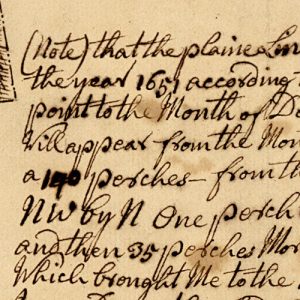 (Note) that the plaine Lin
the year 1651 according
point to the Month of De
will appear from the Mon
a 140 perches - from th
NW by N One perch
and then 35 perches Mor
Which brought Me to the